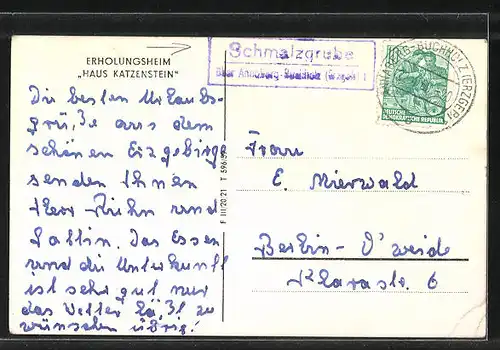 ERHOLUNGSHEIM
„HAUS KATZENSTEIN“
Schmalzgrube
über Annaberg-Buchholz (Erzgeb.)
ANNABERG-BUCHHOLZ (ERZGEB)
DEUTSCHE
DEMOKRATISCHE REPUBLIK
Die besten Urlaubs-
grüße aus dem
schönen Erzgebirge
senden Ihnen
Herr Kühn und
Gattin. Das Essen
und die Unterkunft
ist sehr gut nur
das Wetter läßt zu
wünschen übrig!
F III/20/21 T 596/55
Frau
E. Mierwald
Berlin-O'weide
Klarastr. 6